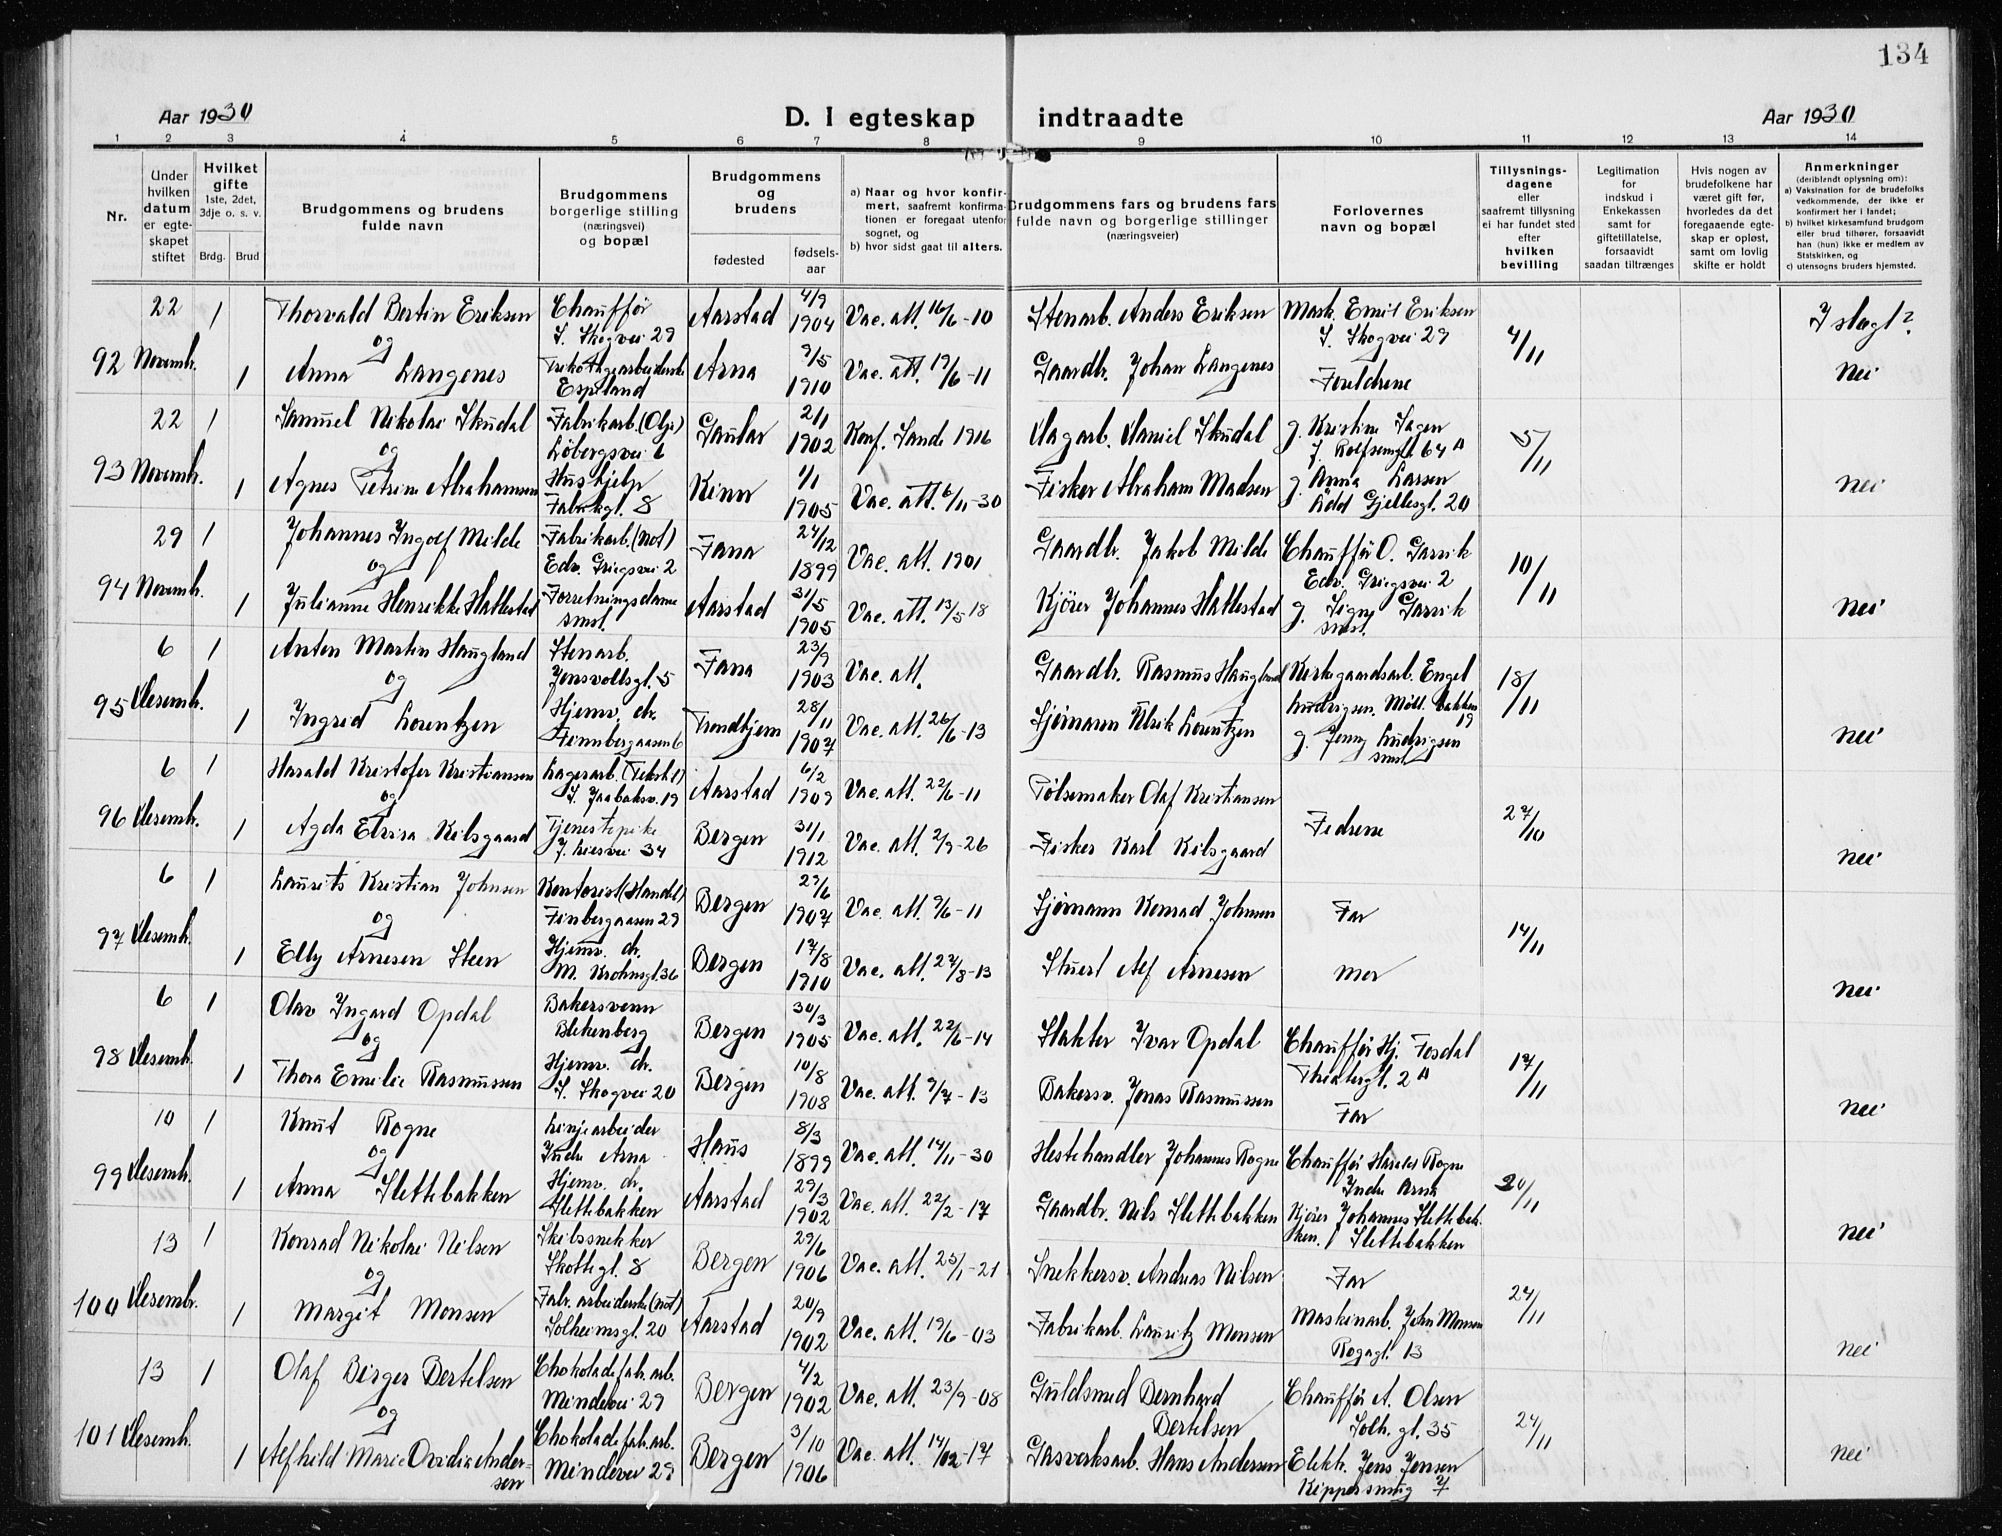 134
Aar 1930
D. I egteskap indtraadte
Aar 1930
1 2 3 4 5 6 7 8 9 10 11 12 13 14
Nr.
Under hvilken datum er egteskapet stiftet
Hvilket gifte
1ste, 2det, 3dje o. s. v.
Brdg. Brud
Brudgommens og brudens fulde navn
Brudgommens borgerlige stilling (næringsvei) og bopæl
Brudgommens og brudens
fødested
fødsels-aar
a) Naar og hvor konfirmert, saafremt konfirmationen er foregaat utenfor sognet, og
b) hvor sidst gaat til alters.
Brudgommens fars og brudens fars fulde navn og borgerlige stillinger (næringsveier)
Forlovernes navn og bopæl
Tillysnings-dagene eller saafremt tillysning ei har fundet sted efter hvilken bevilling
Legitimation for indskud i Enkekassen samt for giftetillatelse, forsaavidt saadan tiltrænges
Hvis nogen av brudefolkene har været gift før, hvorledes da det foregaaende egteskap er opløst, samt om lovlig skifte er holdt
Anmerkninger
(deriblandt oplysning om):
a) Vaksination for de brudefolks vedkommende, der ikke er konfirmert her i landet;
b) hvilket kirkesamfund brudgom eller brud tilhører, forsaavidt han (hun) ikke er medlem av Statskirken, og
c) utensogns bruders hjemsted.
92 22 Novembr. 1 Thorvald Bertin Eriksen Chauffør S. Skogvei 29 Aarstad 4/9 1904 Vac. att. 16/6-10 Stenarb. Anders Eriksen Mask. Emil Eriksen S. Skogvei 29 4/11 I slegt?
og
1 Anna Langenes Trikotagearbeiderske Espeland Arna 9/5 1910 Vac. att. 19/6-11 Gaardbr. Johan Langenes Foreldrene Nei
93 22 Novemb. 1 Samuel Nikolai Skudal Fabrikarb. (Olje) Løbergsvei 6 Gaular 2/11 1902 Konf. Sande 1916 Dagarb. Daniel Skudal g. Kristine Sagen J. Rolfsensgt. 64 A 5/11
og
1 Agnes Petrine Abrahamsen Hushjelp Fabrikgt. 8 Kinn 1/1 1905 Vac. att. 6/11-30 Fisker Abraham Madsen g. Anna Larsen Odd Gjellesgt. 20 nei
94 29 Novemb. 1 Johannes Ingolf Milde Fabrikarb. (Not) Edv. Griegsvei 2 Fana 24/12 1899 Vac. att. 1901 Gaardbr. Jakob Milde Chauffør O. Garvik Edv. Griegsvei 2 10/11
og
1 Julianne Henrikke Hatlestad Forretningsdame smst. Aarstad 31/5 1905 Vac. att. 13/5 18 Kjører Johannes Hatlestad g. Signy Garvik smst. nei
95 6 Desemb. 1 Anton Martin Haugland Stenarb. Jonsvollsgt. 5 Fana 23/9 1903 Vac. att. Gaardbr. Rasmus Haugland Kirkegaardsarb. Engel Ludvigsen. Möll. bakken 19 18/11
og
1 Ingrid Lorentzen Hjemv. dr. Finnbergaasen 6 Trondhjem 28/11 1907 Vac. att. 26/6-13 Sjømann Ulrik Lorentzen g. Jenny Ludvigsen smst. nei
96 6 Desemb. 1 Harald Kristofer Kristiansen Lagerarb. (Tekstil) Aarstad 6/2 1909 Vac. att. 22/6-11 Pølsemaker Olaf Kristiansen Fedrene 27/10
og
1 Agda Elvira Kilsgaard Tjenestepike J. Liesvei 34 Bergen 31/1 1912 Vac. att. 2/9-26 Fisker Karl Kilsgaard nei
97 6 Desemb. 1 Laurits Kristian Johnsen Kontorist (Handel) Finbergaasen 29 Bergen 27/6 1907 Vac. att. 9/6-11 Sjømann Konrad Johnsen Far 14/11
og
1 Elly Arnesen Steen Hjemv. dr. M. Krohnsgt. 36 Bergen 17/8 1910 Vac. att. 27/8-13 Stuert Alf Arnesen mor nei
98 6 Desemb. 1 Olav Ingard Opdal Bakersvenn Blekenberg Bergen 30/3 1905 Vac. att. 22/6-14 Slakter Ivar Opdal Chauffør Hj. Fosdal Theatergt. 2 A 17/11
og
1 Thora Emilie Rasmussen Hjemv. dr. S. Skogvei 20 Bergen 10/8 1908 Vac. att. 9/7-13 Bakersv. Jonas Rasmussen Far nei
99 10 Desemb. 1 Knut Rogne Linjearbeider Indre Arna Haus 8/3 1899 Vac. att. 14/11-30 Hestehandler Johannes Rogne Chauffør Harald Rogne Indre Arna 20/11
og
1 Anna Slettebakken Hjemv. dr. Slettebakken Aarstad 29/3 1902 Vac. att. 22/2-17 Gaardbr. Nils Slettebakken Kjører Johannes Slettebakken. Slettebakken nei
100 13 Desembr. 1 Konrad Nikolai Nilsen Skibssnekker Skottegt. 8 Bergen 29/6 1906 Vac. att. 25/1-21 Snekkersv. Andreas Nilsen Far 24/11
og
1 Margit Monsen Fabr. arbeiderske (not) Solheimsgt. 20 Aarstad 20/9 1902 Vac. att. 19/6-03 Fabrikarb. Lauritz Monsen Maskinarb. John Monsen Rogagt. 13 nei
101 13 Desemb. 1 Olaf Birger Bertelsen Chokoladefabr. arb. Mindevei 29 Bergen 4/2 1902 Vac. att. 23/9-08 Guldsmed Bernhard Bertelsen Chauffør A. Olsen Solh. gt. 35 24/11
og
1 Alfhild Marie Ovidia Andersen Chokoladefabr. arb. Mindevei 29 Bergen 3/10 1906 Vac. att. 14/02-17 Gasverksarb. Hans Andersen Elektr. Jens Jensen Kippersmug 7 nei